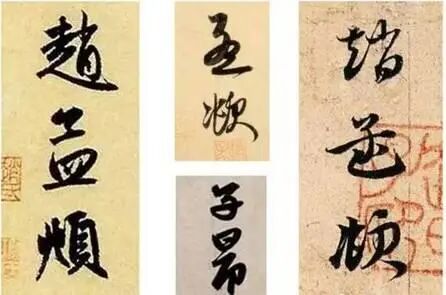 趙孟頫
孟頫
子昂
趙孟頫